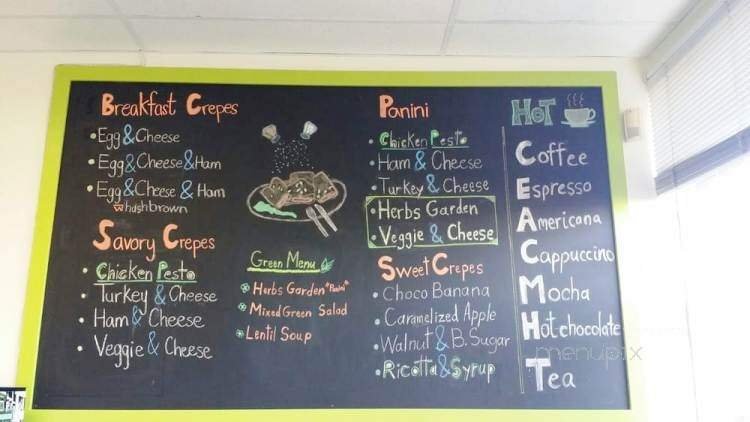 Breakfast Crepes
• Egg & Cheese
• Egg & Cheese & Ham
• Egg & Cheese & Ham
w hashbrown
Savory Crepes
• Chicken Pesto
• Turkey & Cheese
• Ham & Cheese
• Veggie & Cheese
Green Menu
Herbs Garden "Panini"
Mixed Green Salad
Lentil Soup
Panini
• Chicken Pesto
• Ham & Cheese
• Turkey & Cheese
• Herbs Garden
• Veggie & Cheese
Sweet Crepes
• Choco Banana
• Caramelized Apple
• Walnut & B. Sugar
• Ricotta & Syrup
HOT
Coffee
Espresso
Americana
Cappuccino
Mocha
Hot chocolate
Tea
menupix